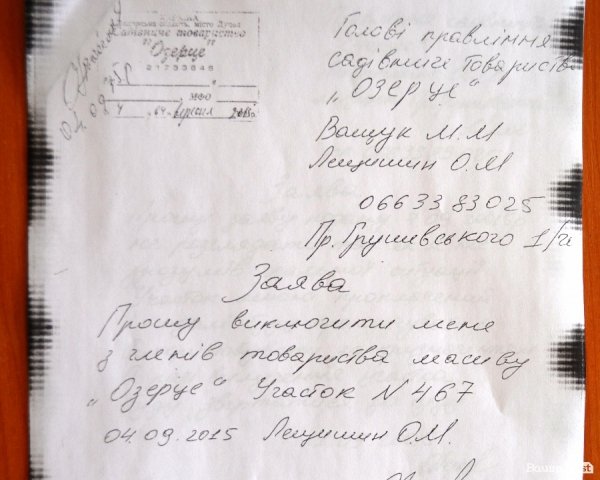 місто Луцьк
Садівниче товариство
"Озерце"
01233646
№ 5Р
МФО
4 " 04 " вересня 2015р
04.09
Голові правління
садівничі товариств
"ОЗЕРЦЕ"
Ващук М.М
Лещишин О.М
066 33 83 025
Пр. Грушевського
Заява
Прошу виключити мене
з членів товариства масиву
"Озерце" Участок N 467
04.09.2015 Лещишин О.М.